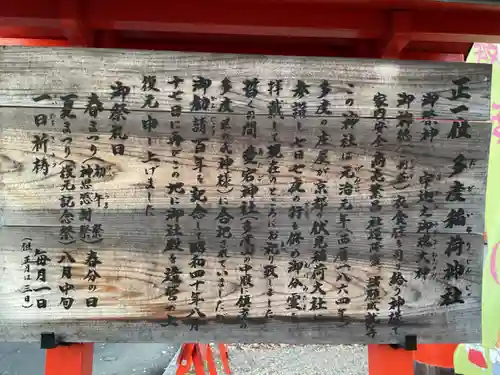 正一位 多度稲荷神社
御祭神 宇迦之御魂大神
御神徳 衣食住を司り給う神様で
家内安全 商売繁昌
この神社は元治元年(西暦一八六四年)
多度の庄屋が京都の伏見稲荷大社に
参詣し七日七夜の行を修め御分霊を
拝戴して現在のところにお祀り致しました
暫くの間 愛宕神社(多度の中腹鎮守の
多度 神社)に合祀されていましたが
御勧請百年を記念し昭和四十年八月
十七日に の地に御社殿を造営の上
復元申し上げました
御祭礼日
春まつり(初午祭) 春分の日
夏まつり(復元記念祭) 八月中旬
一日祈祷 毎月一日
(但正月は三日)